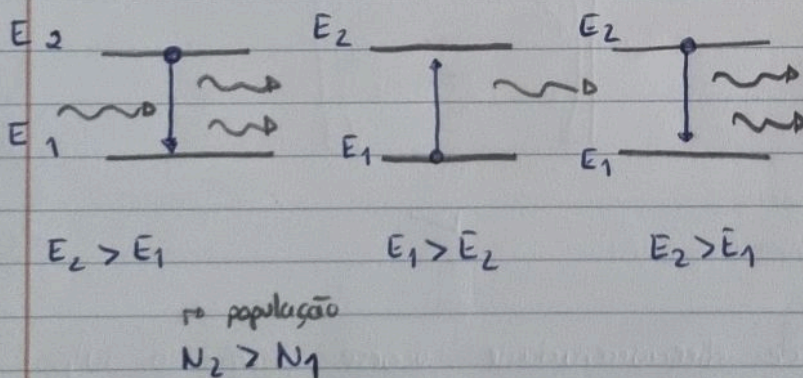 E2 E2 E2
E1 E1 E1
E2 > E1 E1 > E2 E2 > E1
população
N2 > N1